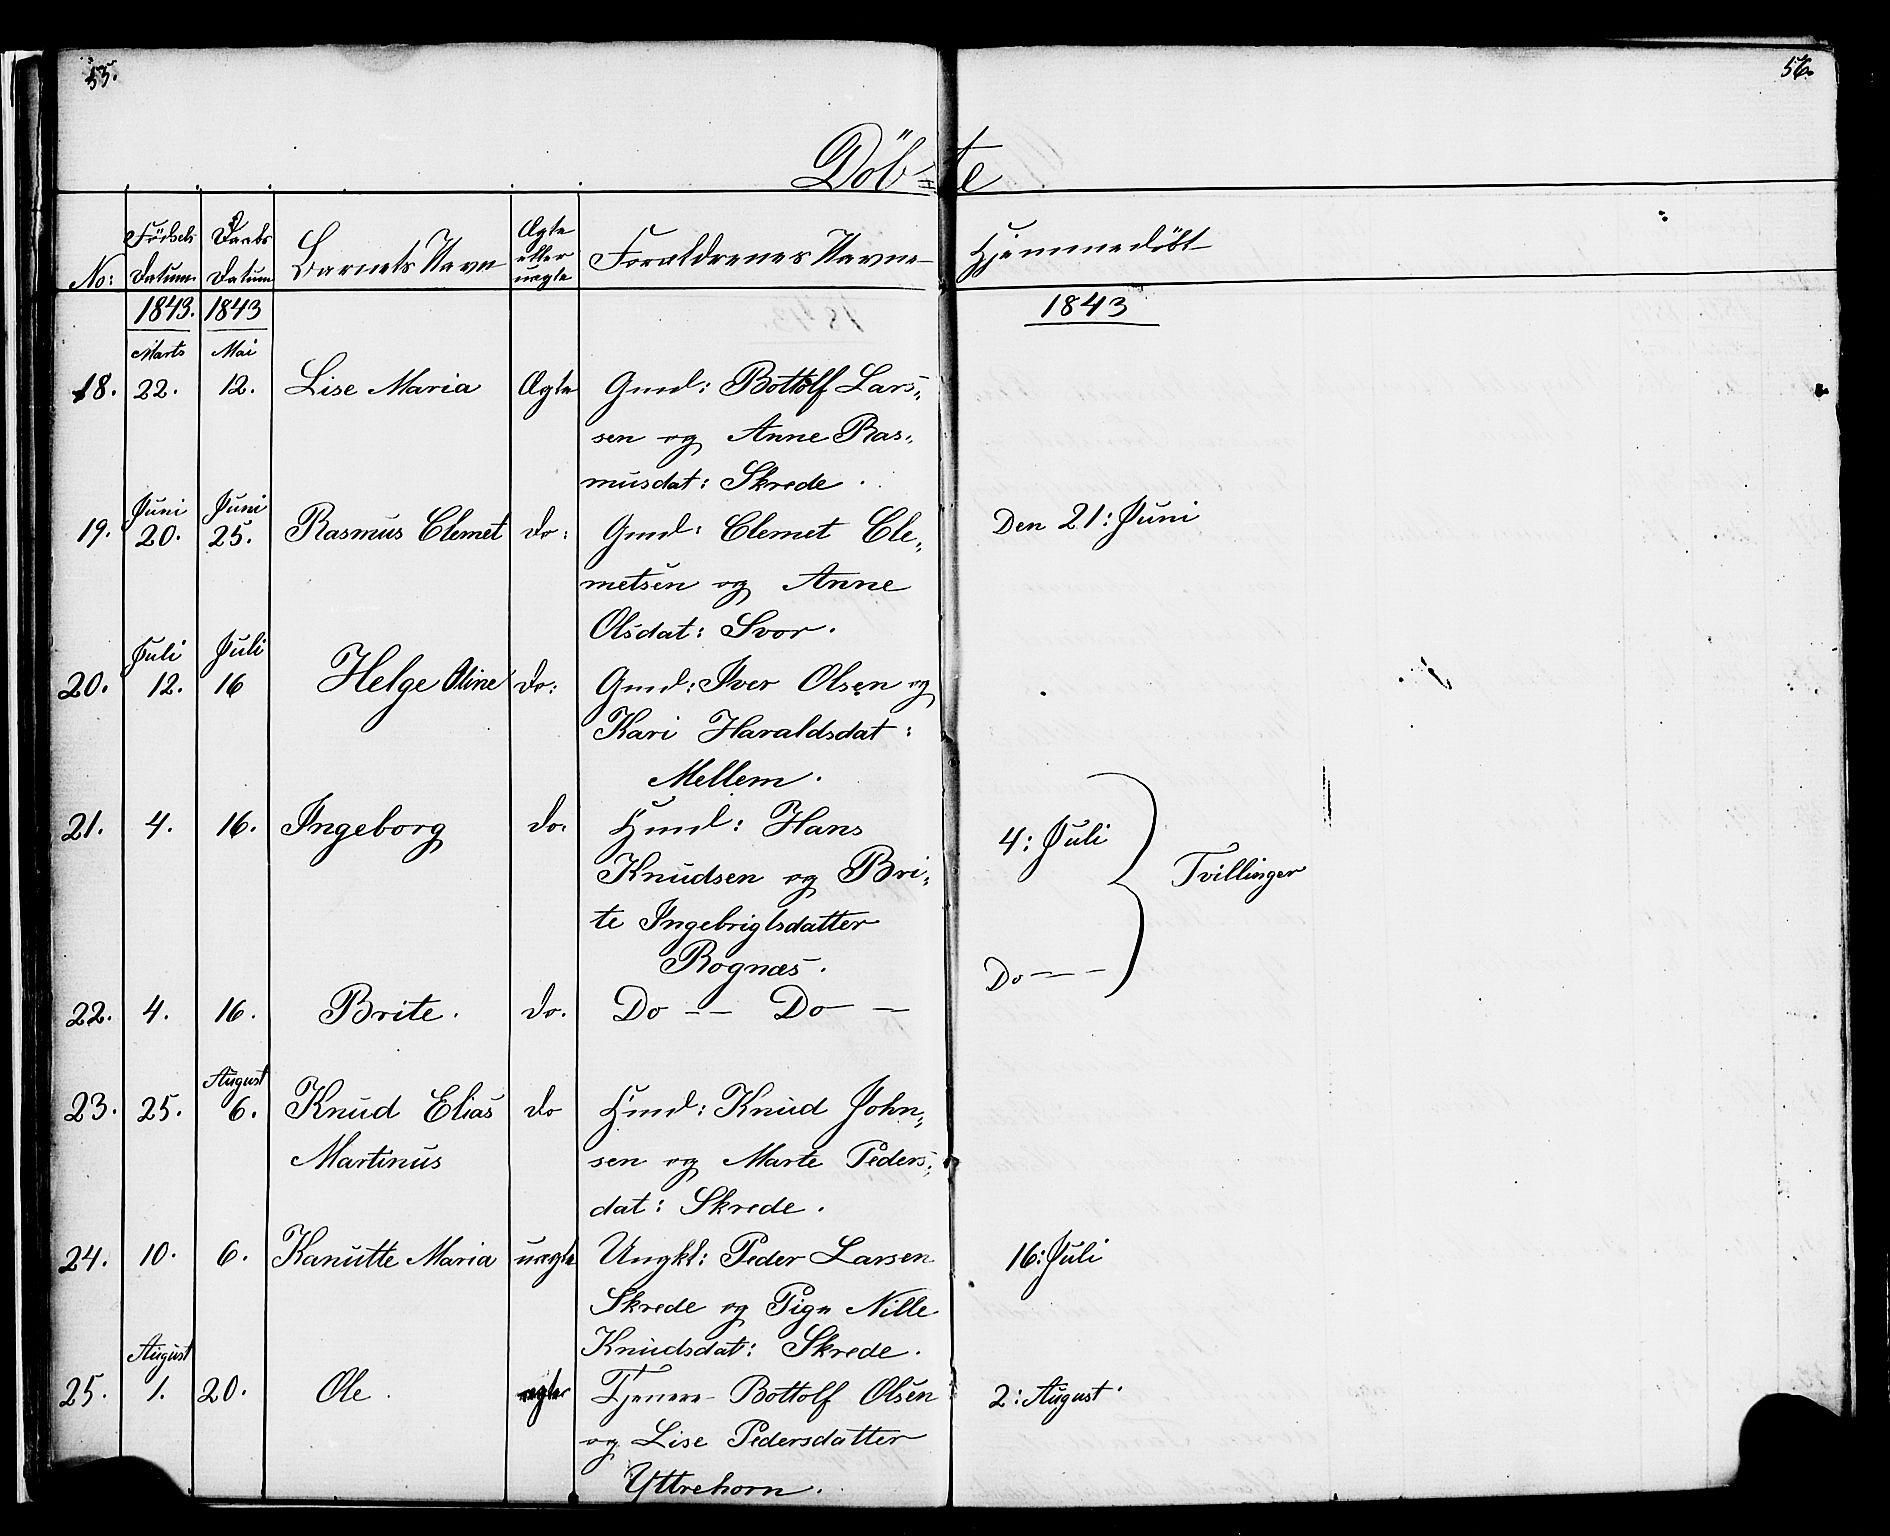 55.
56.
Döb=te
No: Födsels Datum Daabs Datum Barnets Navn Ægte eller uægte Forældrenes Navne Hjemmedöbt
1843. 1843 1843
Marts Mai
18. 22. 12. Lise Maria Ægte Gmd: Bottolf Lars=
sen og Anne Ras=
musdat: Skrede.
Juni Juni
19. 20. 25. Rasmus Clemet do: Gmd: Clemet Cle= Den 21: Juni
metsen og Anne
Olsdat: Svor.
Juli Juli
20. 12. 16 Helge Oline do: Gmd: Iver Olsen og
Kari Haraldsdat:
Mellem.
21. 4. 16. Ingeborg do. Hmd: Hans 4: Juli
Knudsen og Bri= Tvillinger
te Ingebrigtsdatter
Rognæs.
Do — —
22. 4. 16. Brite. do. Do — — Do —
August
23. 25. 6. Knud Elias do Hmd: Knud John=
Martinus sen og Marte Peders=
dat: Skrede.
24. 10. 6. Kanutte Maria uægte Ungkl: Peder Larsen 16: Juli
Skrede og Pige Nille
Knudsdat: Skrede.
August
25. 1. 20. Ole. ægte Tjenere Bottolf Olsen 2: August
og Lise Pedersdatter
Yttrehorn.